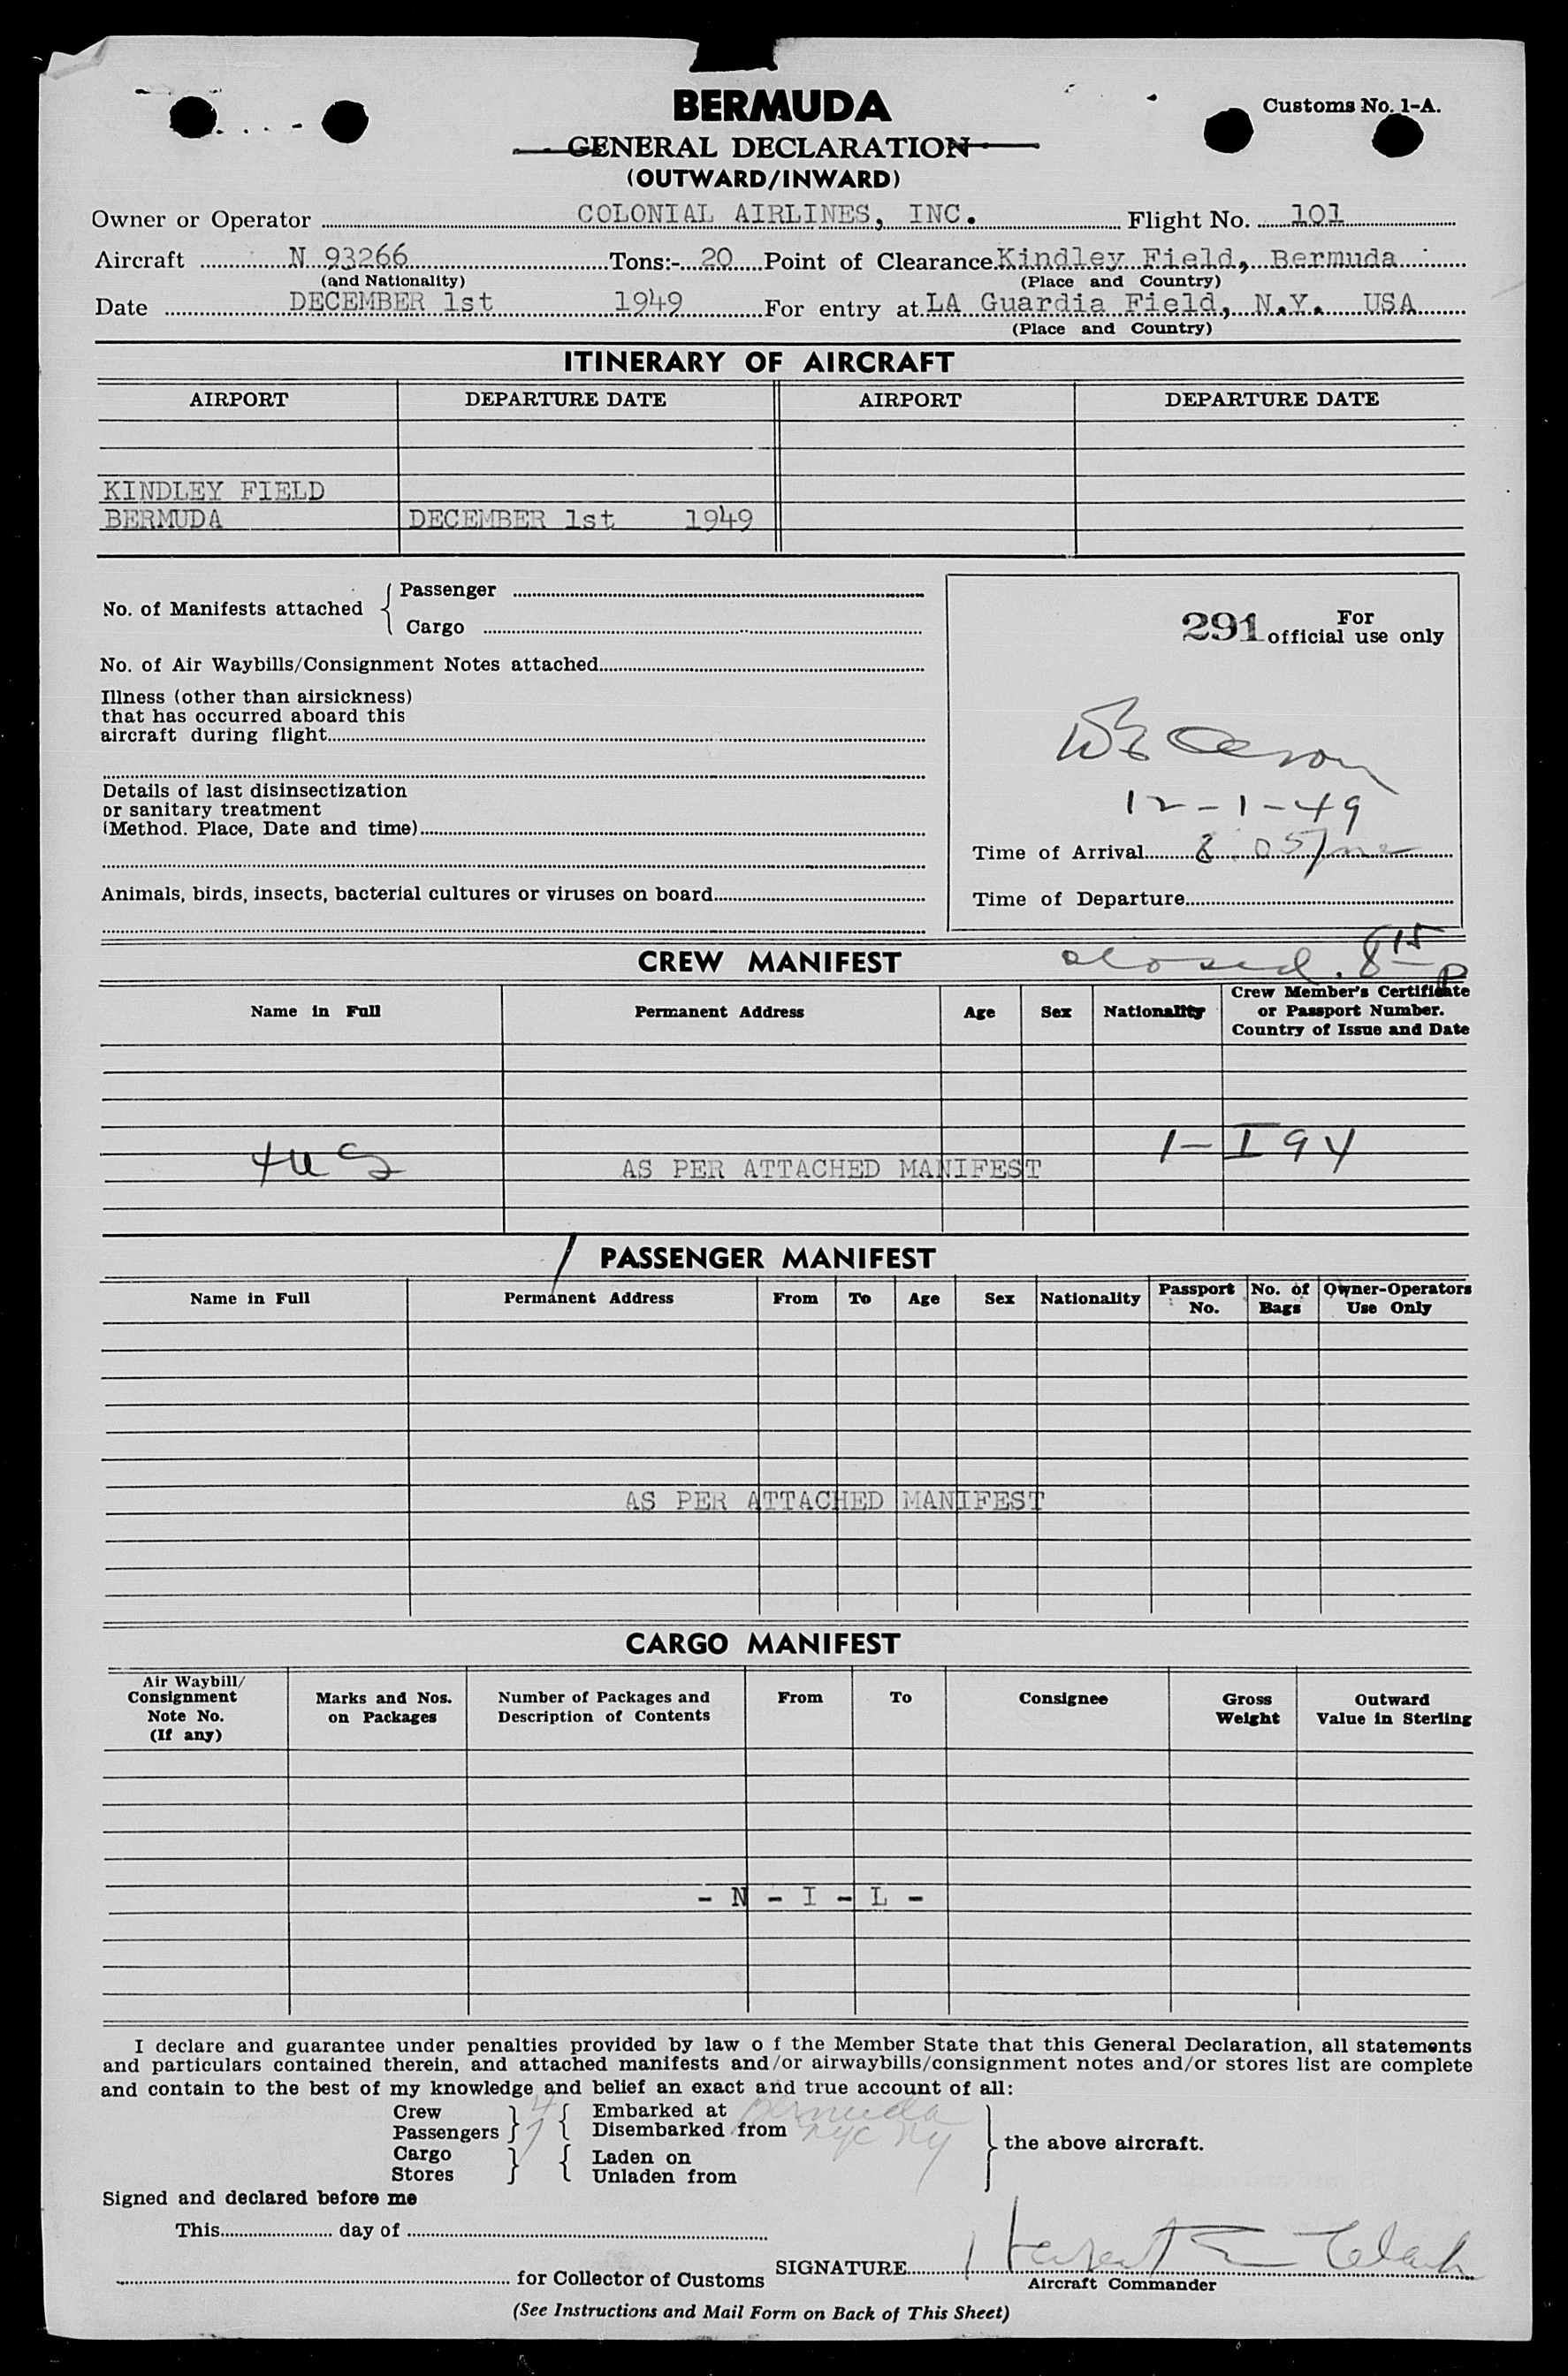 BERMUDA
Customs No. 1-A.
GENERAL DECLARATION
(OUTWARD/INWARD)
Owner or Operator COLONIAL AIRLINES, INC. Flight No. 101
Aircraft N 93266 Tons:- 20 Point of Clearance Kindley Field, Bermuda
(and Nationality) (Place and Country)
Date DECEMBER 1st 1949 For entry at LA Guardia Field, N.Y. USA
(Place and Country)
ITINERARY OF AIRCRAFT
AIRPORT DEPARTURE DATE AIRPORT DEPARTURE DATE
KINDLEY FIELD
BERMUDA DECEMBER 1st 1949
No. of Manifests attached { Passenger
Cargo
291 For official use only
No. of Air Waybills/Consignment Notes attached
Illness (other than airsickness)
that has occurred aboard this
aircraft during flight
Details of last disinsectization
or sanitary treatment
(Method. Place, Date and time)
12-1-49
Time of Arrival 8:05 pm
Animals, birds, insects, bacterial cultures or viruses on board
Time of Departure
CREW MANIFEST closed. 8 15 p
Name in Full Permanent Address Age Sex Nationality Crew Member's Certificate
or Passport Number.
Country of Issue and Date
4 US AS PER ATTACHED MANIFEST 1-I 94
PASSENGER MANIFEST
Name in Full Permanent Address From To Age Sex Nationality Passport No. No. of Bags Owner-Operators Use Only
AS PER ATTACHED MANIFEST
CARGO MANIFEST
Air Waybill/
Consignment
Note No.
(If any) Marks and Nos. on Packages Number of Packages and Description of Contents From To Consignee Gross Weight Outward Value in Sterling
- N - I - L -
I declare and guarantee under penalties provided by law o f the Member State that this General Declaration, all statements
and particulars contained therein, and attached manifests and/or airwaybills/consignment notes and/or stores list are complete
and contain to the best of my knowledge and belief an exact and true account of all:
Crew 4 Embarked at Bermuda
Passengers 1 Disembarked from NYC NY
the above aircraft.
Cargo Laden on
Stores Unladen from
Signed and declared before me
This day of
SIGNATURE Herbert E Clark
for Collector of Customs
Aircraft Commander
(See Instructions and Mail Form on Back of This Sheet)